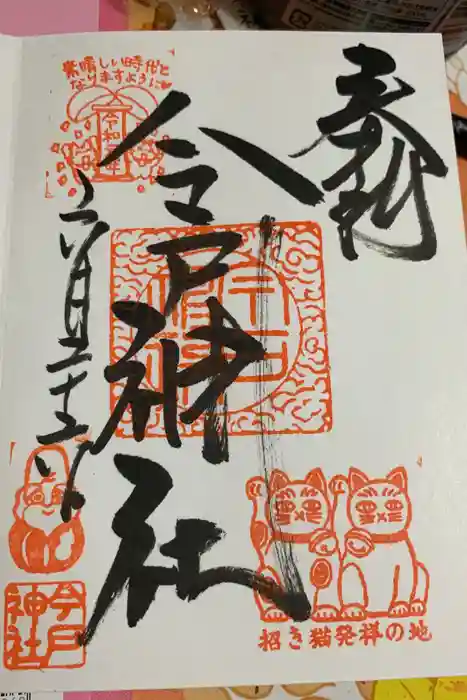 奉拝
素晴しい時代と
なりますように
令和元年
今戸神社
六月二十六日
招き猫発祥の地
今戸
神社